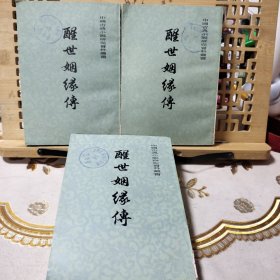 中國古典小說研究資料叢書
醒世姻緣傳
中國古典小說研究資料叢書
醒世姻緣傳
中國古典小說研究資料叢書
醒世姻緣傳